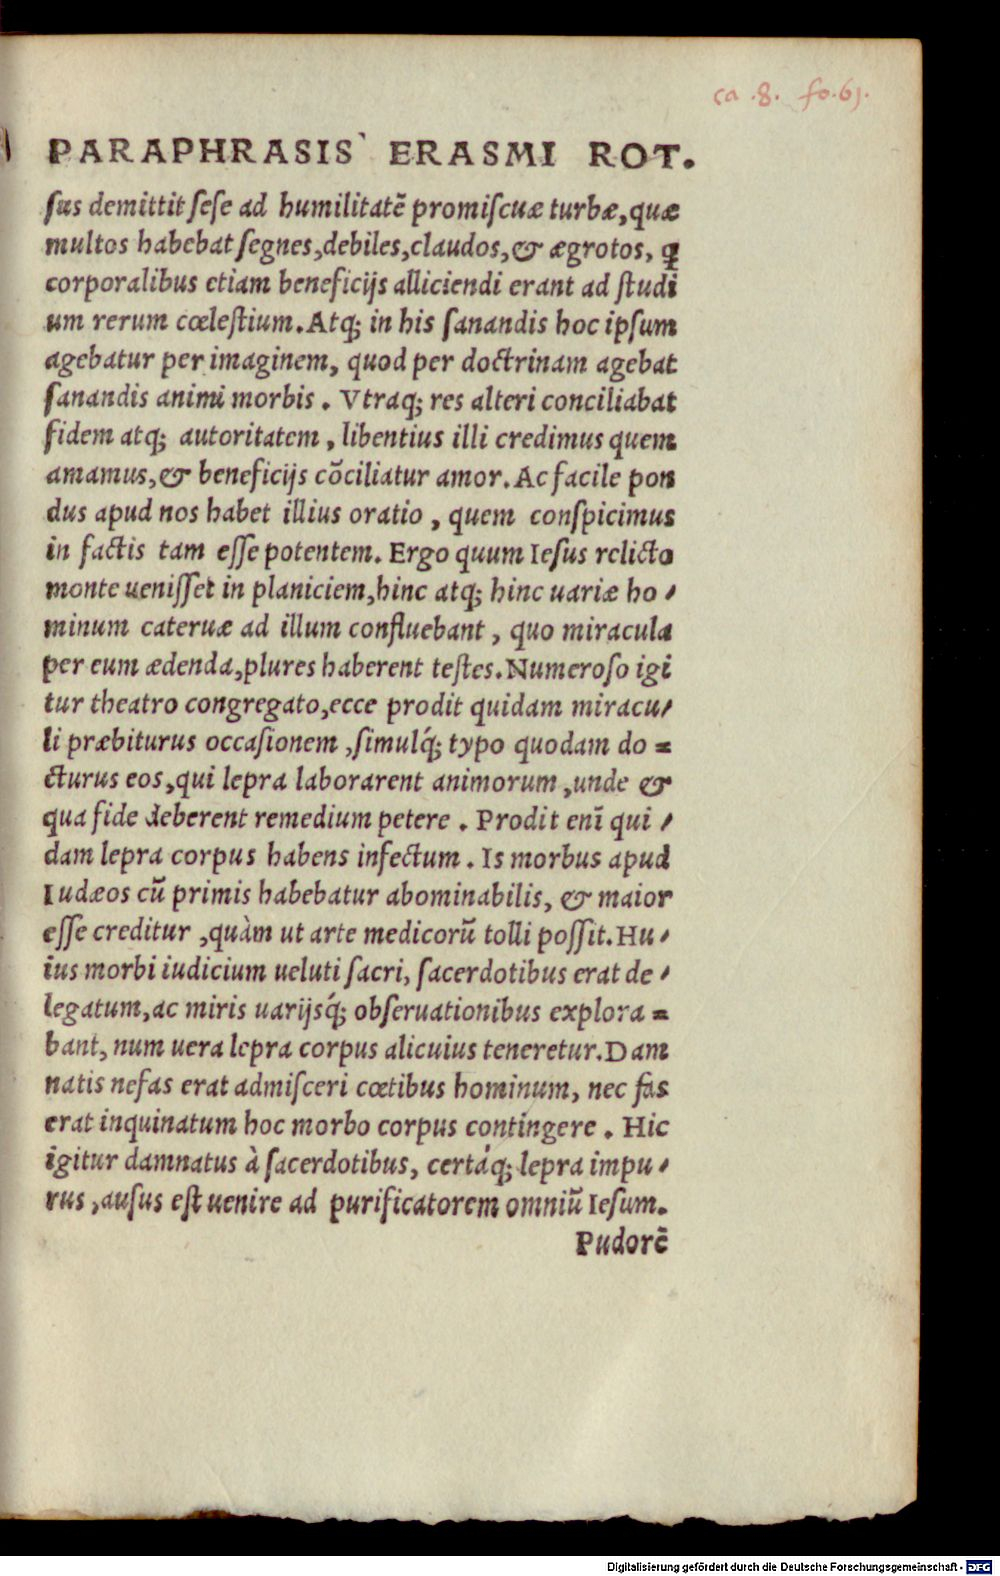 ca .8. fo.61.
PARAPHRASIS ERASMI ROT.
sus demittit sese ad humilitatē promiscuæ turbæ, quæ
multos habebat segnes, debiles, claudos, & ægrotos, ꝗ
corporalibus etiam beneficijs alliciendi erant ad studi
um rerum cœlestium. Atq; in his sanandis hoc ipsum
agebatur per imaginem, quod per doctrinam agebat
sanandis animi morbis. Vtraq; res alteri conciliabat
fidem atq; autoritatem, libentius illi credimus quem
amamus, & beneficijs cōciliatur amor. Ac facile pon
dus apud nos habet illius oratio, quem conspicimus
in factis tam esse potentem. Ergo quum Iesus relicto
monte uenisset in planiciem, hinc atq; hinc uariæ ho-
minum cateruæ ad illum confluebant, quo miracula
per eum ædenda, plures haberent testes. Numeroso igi
tur theatro congregato, ecce prodit quidam miracu-
li præbiturus occasionem, simulq́; typo quodam do=
cturus eos, qui lepra laborarent animorum, unde &
qua fide deberent remedium petere. Prodit enī qui-
dam lepra corpus habens infectum. Is morbus apud
Iudæos cū primis habebatur abominabilis, & maior
esse creditur, quàm ut arte medicorū tolli possit. Hu-
ius morbi iudicium ueluti sacri, sacerdotibus erat de-
legatum, ac miris uarijsq́; obseruationibus explora=
bant, num uera lepra corpus alicuius teneretur. Dam
natis nefas erat admisceri cœtibus hominum, nec fas
erat inquinatum hoc morbo corpus contingere. Hic
igitur damnatus à sacerdotibus, certáq; lepra impu-
rus, ausus est uenire ad purificatorem omniū Iesum.
Pudorē
Digitalisierung gefördert durch die Deutsche Forschungsgemeinschaft - DFG